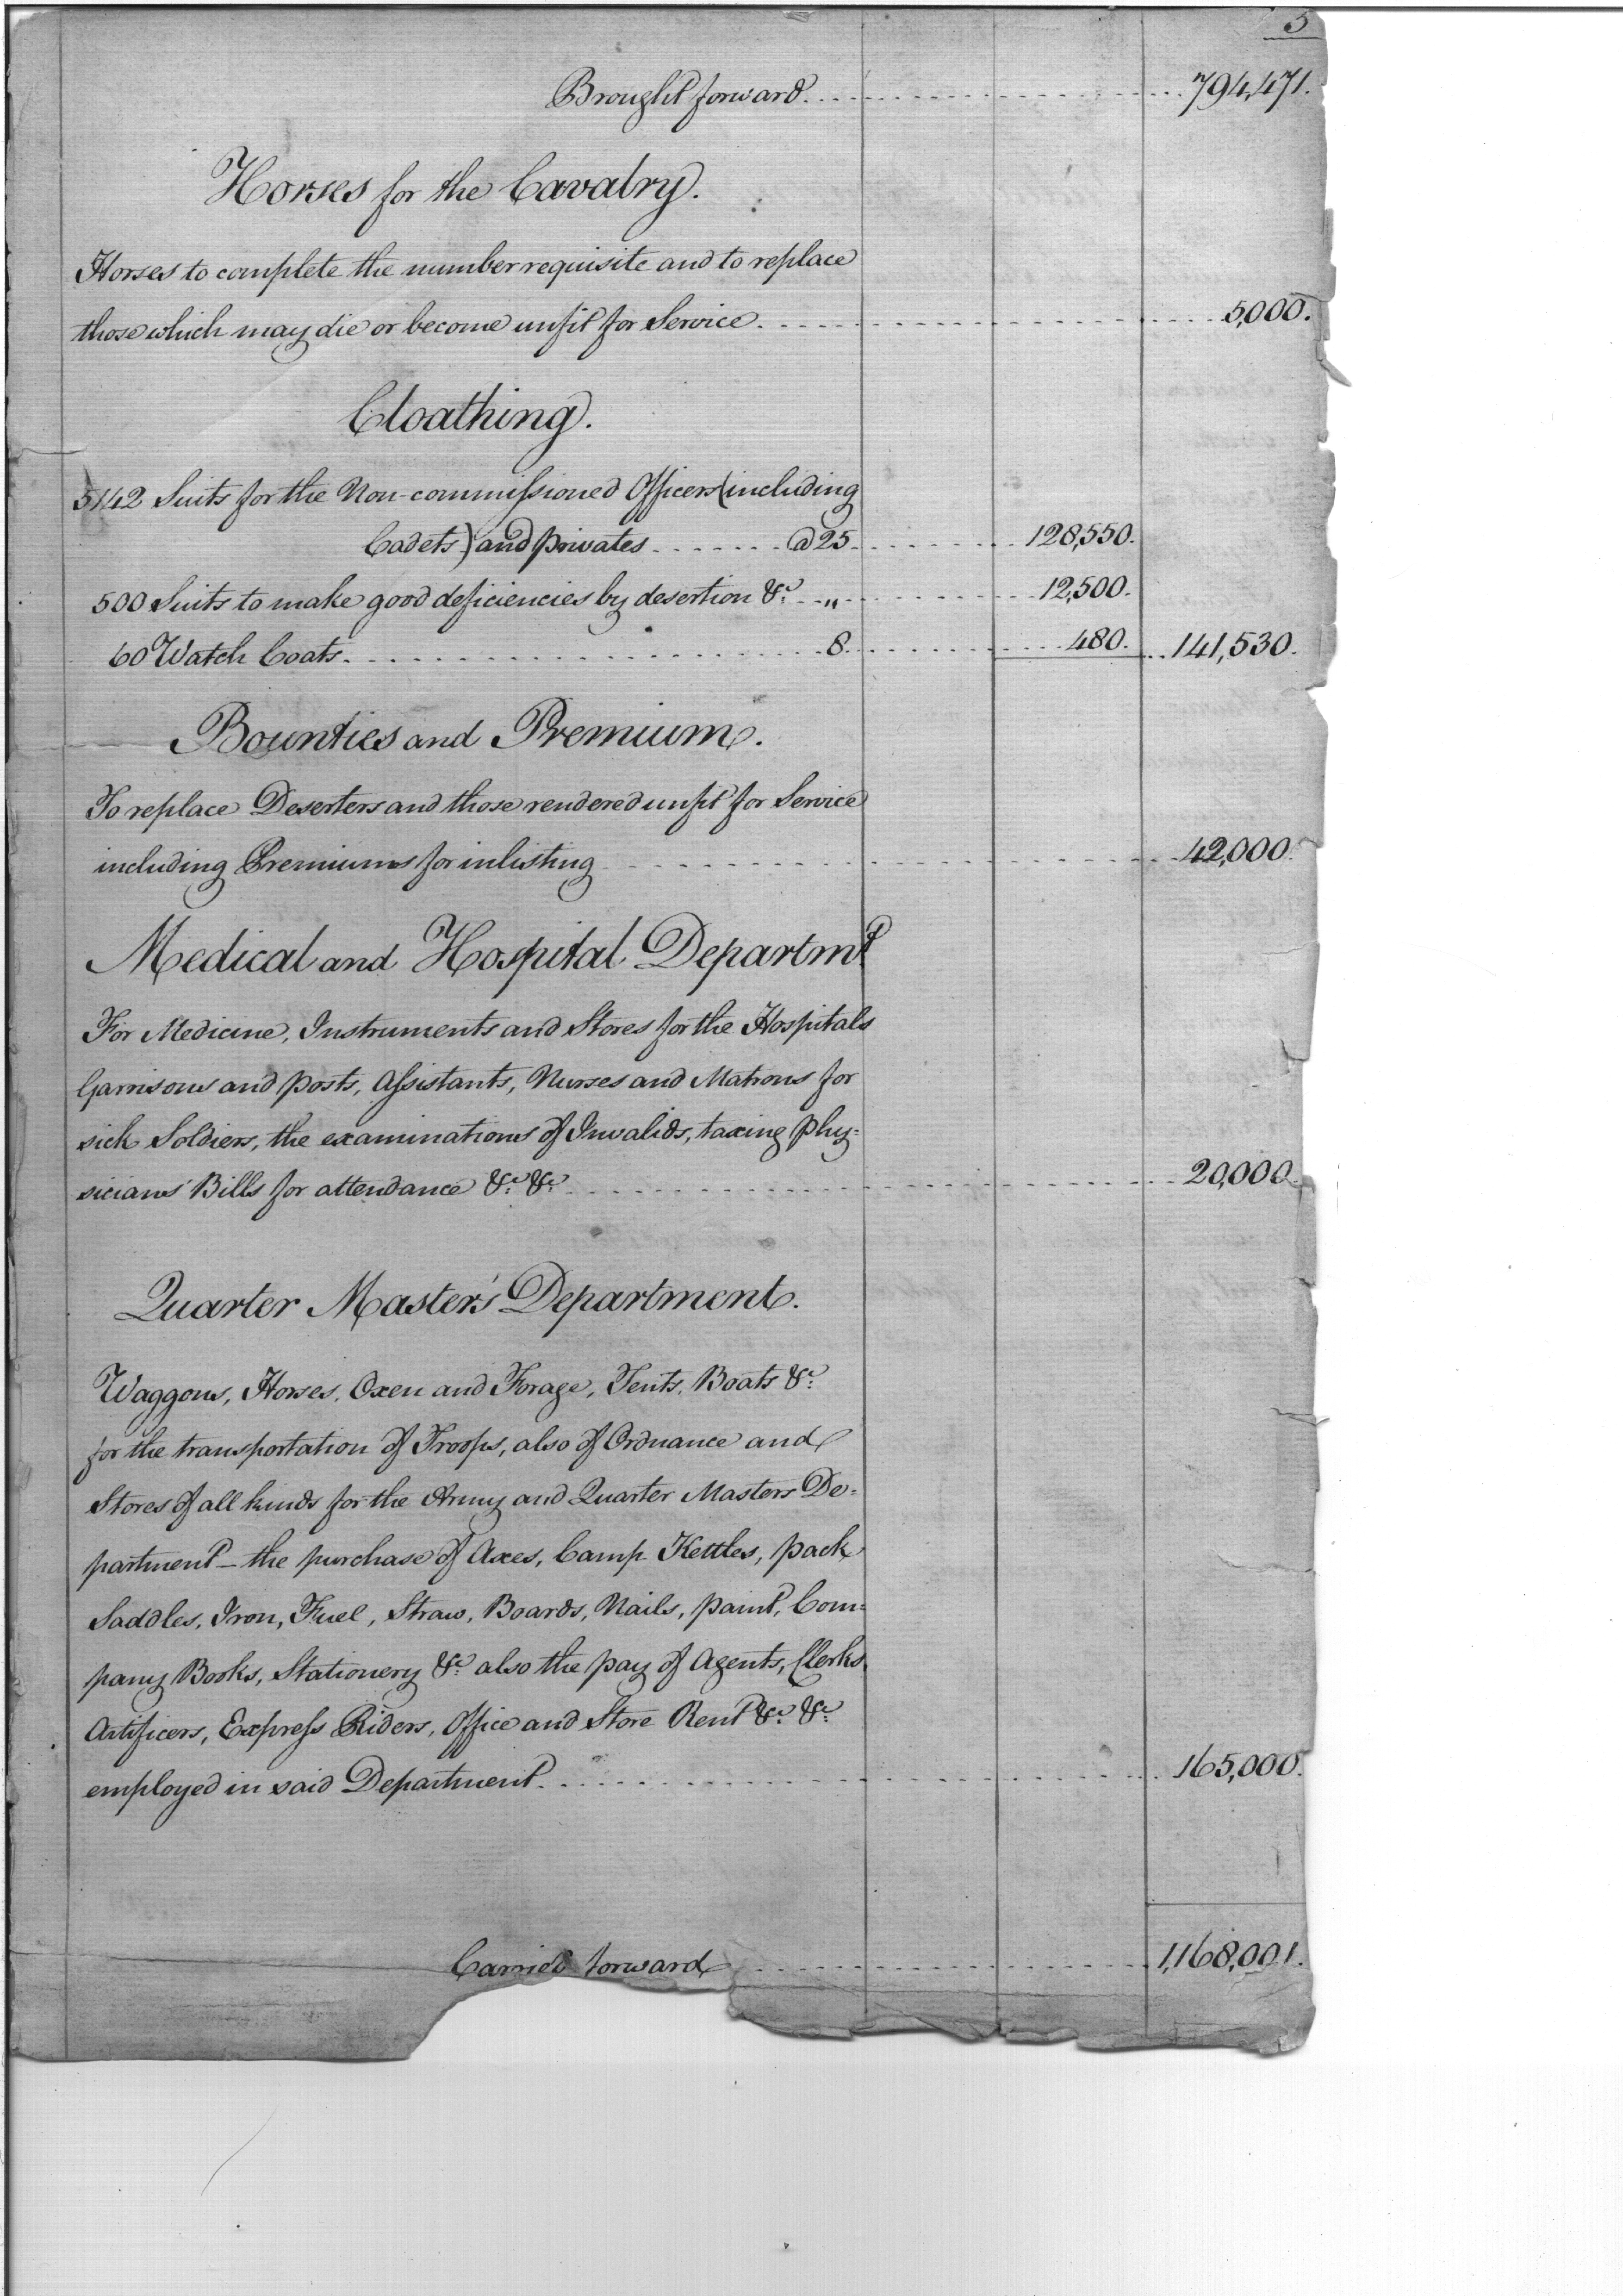 5
Brought forward. 794,471.
Horses for the Cavalry.
Horses to complete the number requisite and to replace
those which may die or become unfit for Service. 5,000.
Cloathing.
5142 Suits for the Non-commissioned Officers (including
Cadets) and privates @ 25 128,550.
500 Suits to make good deficiencies by desertion &c. „ 12,500.
60 Watch Coats. 8. 480. 141,530.
Bounties and Premiums.
To replace Deserters and those rendered unfit for Service
including Premiums for inlisting 42,000.
Medical and Hospital Departmt.
For Medicine, Instruments and Stores for the Hospitals
Garrisons and posts, Assistants, Nurses and Matrons for
sick Soldiers, the examinations of Invalids, taxing Phy=
sicians' Bills for attendance &c. &c. 20,000.
Quarter Master's Department.
Waggons, Horses, Oxen and Forage, Tents, Boats &c.
for the transportation of Troops, also of Ordnance and
Stores of all kinds for the Army and Quarter Masters De=
partment — the purchase of Axes, Camp Kettles, pack
Saddles, Iron, Fuel, Straw, Boards, Nails, paint, Com=
pany Books, Stationery &c. also the pay of Agents, Clerks
Artificers, Express Riders, Office and Store Rent &c. &c.
employed in said Department. 165,000.
Carried forward 1,168,001.